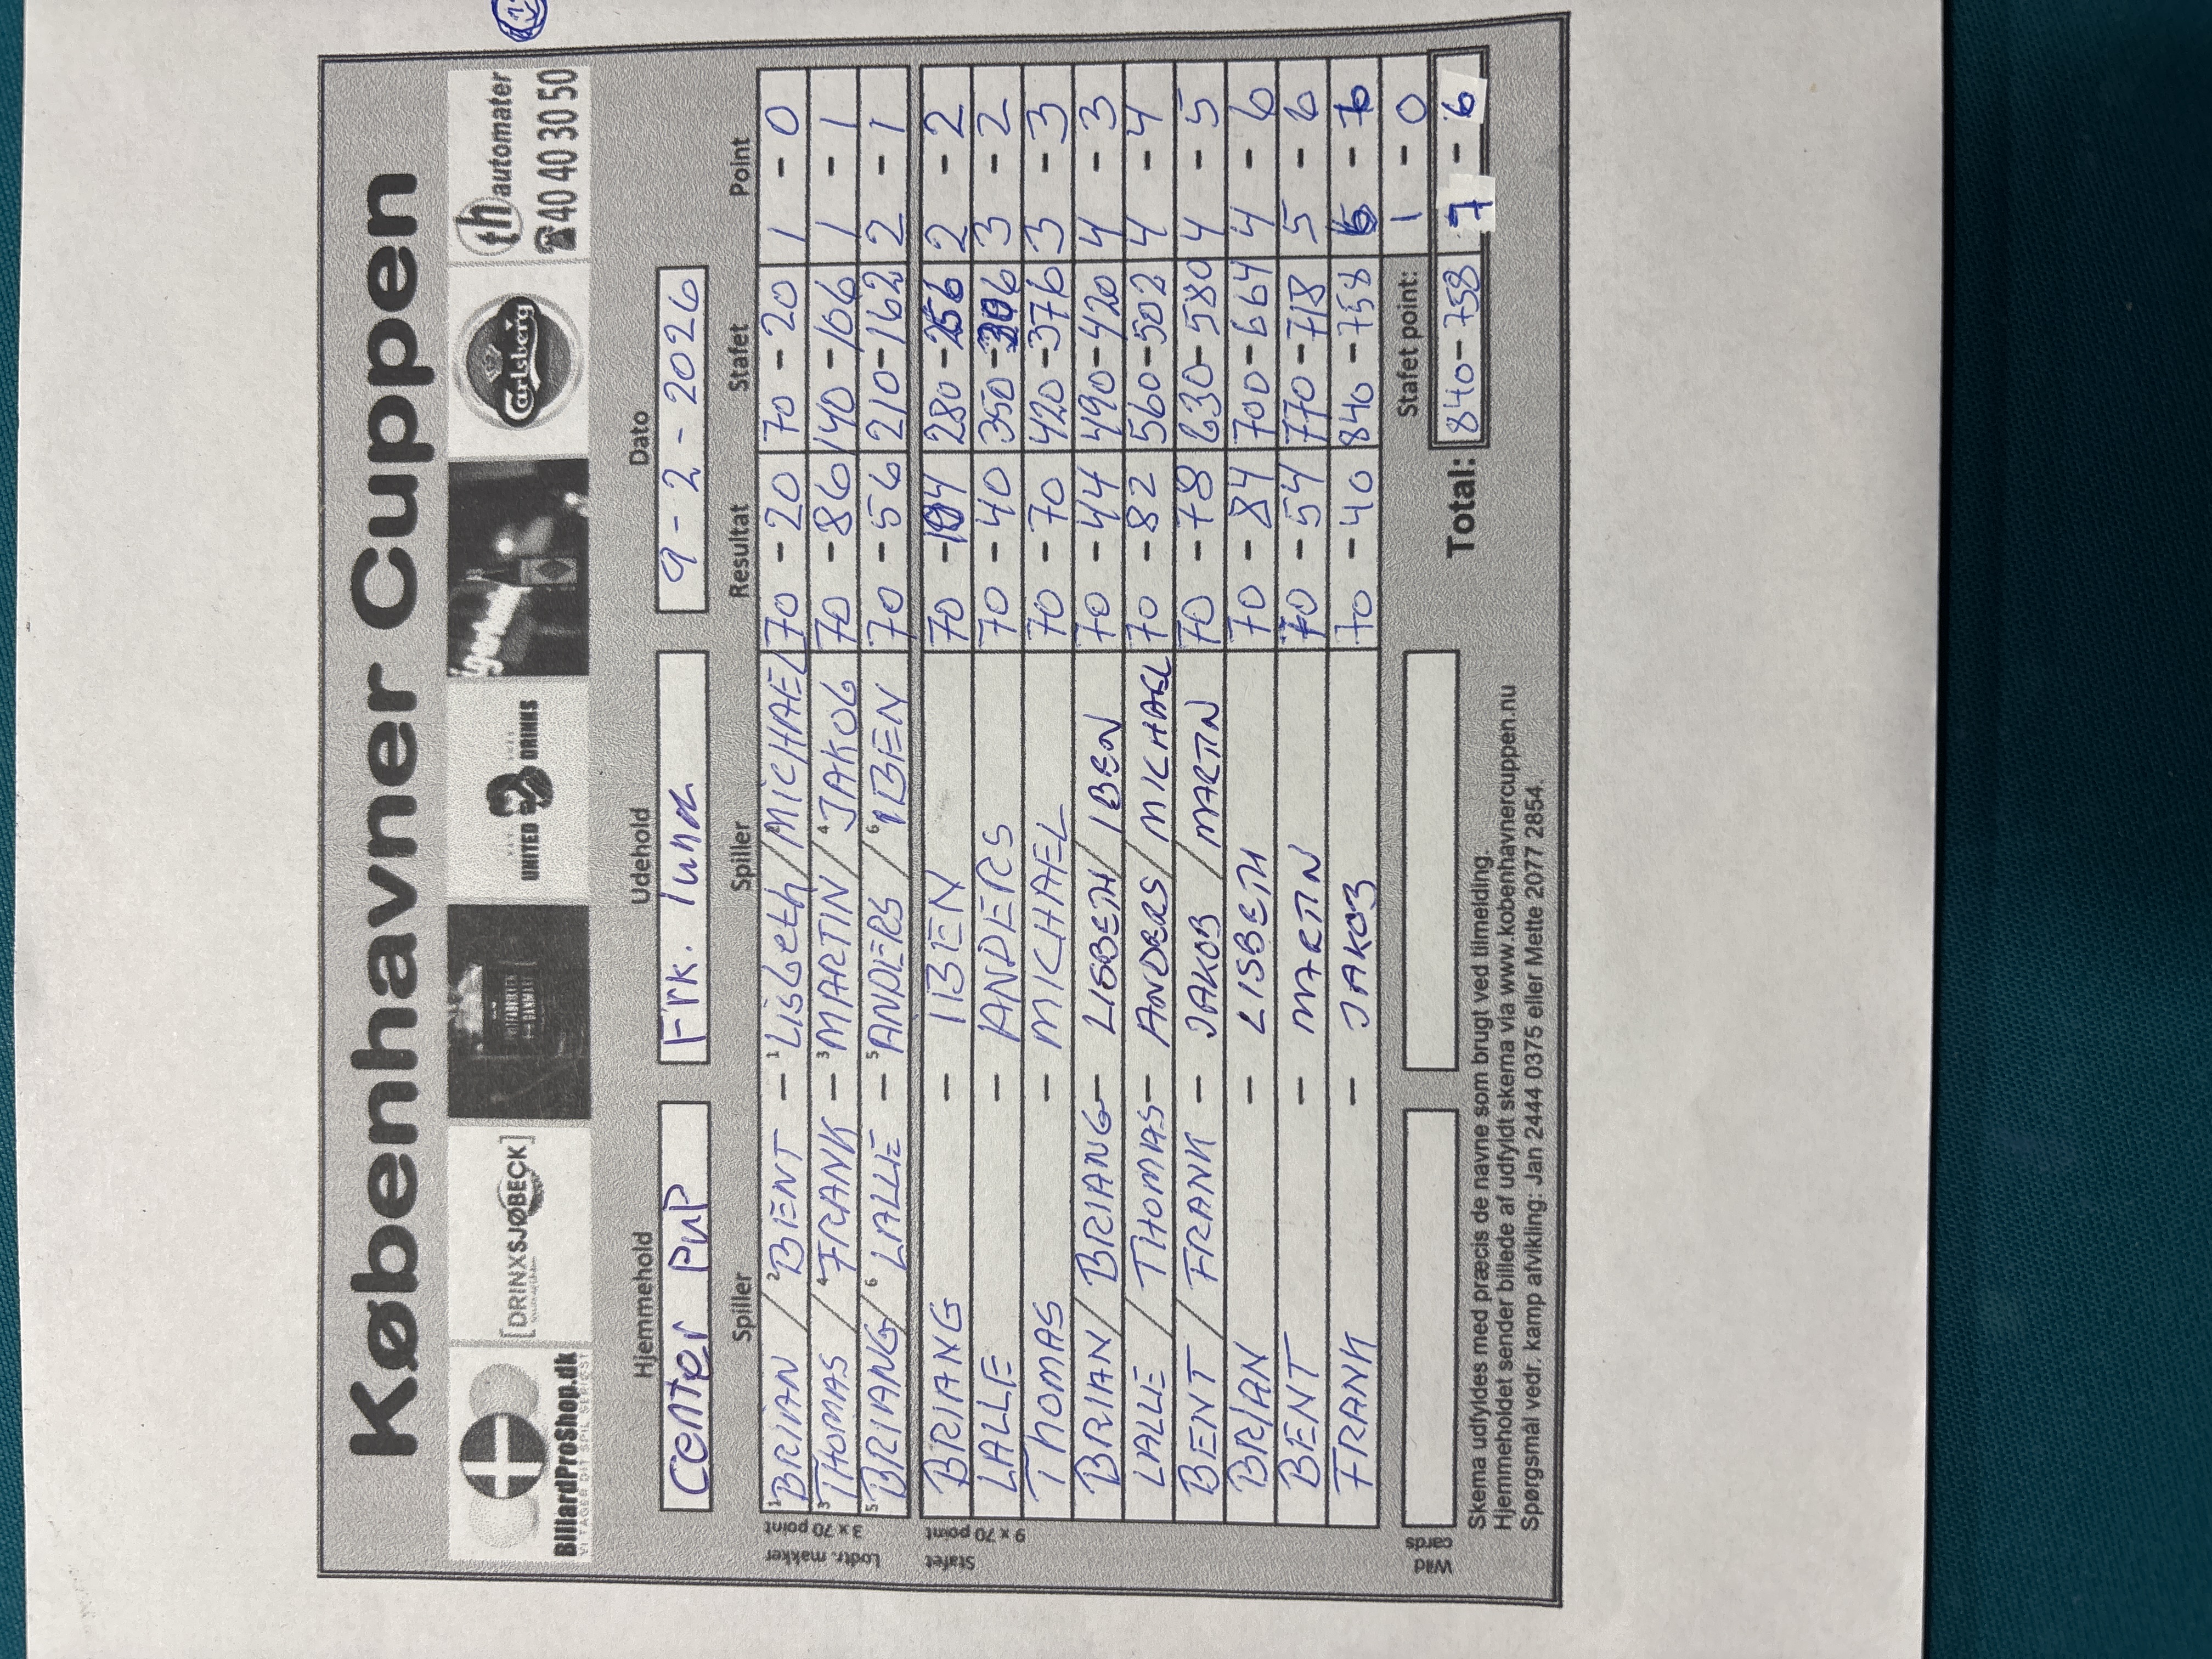 Københavner Cuppen
BillardProShop.dk
VI TAGER DIT SPIL SERIØST
[DRINXSJØBECK]
UNITED DRINKS
Carlsberg
th automater
☎ 40 40 30 50
Hjemmehold Udehold Dato
Center PuP Frk. luna 9 - 2 - 2026
Spiller Spiller Resultat Stafet Point
Lodtr. makker 3 x 70 point
1 BRIAN / 2 BENT - 1 Lisbeth / MICHAEL 70 - 20 70 - 20 1 - 0
3 THOMAS / 4 FRANK - 3 MARTIN / 4 JAKOB 70 - 86 140 - 106 1 - 1
5 BRIANG / 6 LALLE - 5 ANDERS / 6 IBEN 70 - 56 210 - 162 2 - 1
Stafet 9 x 70 point
BRIANG - IBEN 70 - 104 280 - 256 2 - 2
LALLE - ANDERS 70 - 40 350 - 306 3 - 2
THOMAS - MICHAEL 70 - 70 420 - 376 3 - 3
BRIAN / BRIANG - LISBETH / IBEN 70 - 44 490 - 420 4 - 3
LALLE / THOMAS - ANDERS / MICHAEL 70 - 82 560 - 502 4 - 4
BENT / FRANK - JAKOB / MARTIN 70 - 78 630 - 580 4 - 5
BRIAN - LISBETH 70 - 84 700 - 664 4 - 6
BENT - MARTIN 70 - 54 770 - 718 5 - 6
FRANK - JAKOB 70 - 40 840 - 758 6 - 6
Stafet point: 1 - 0
Wild cards
Total: 840 - 758 7 - 6
Skema udfyldes med præcis de navne som brugt ved tilmelding.
Hjemmeholdet sender billede af udfyldt skema via www.københavnercuppen.nu
Spørgsmål vedr. kamp afvikling: Jan 2444 0375 eller Mette 2077 2854.